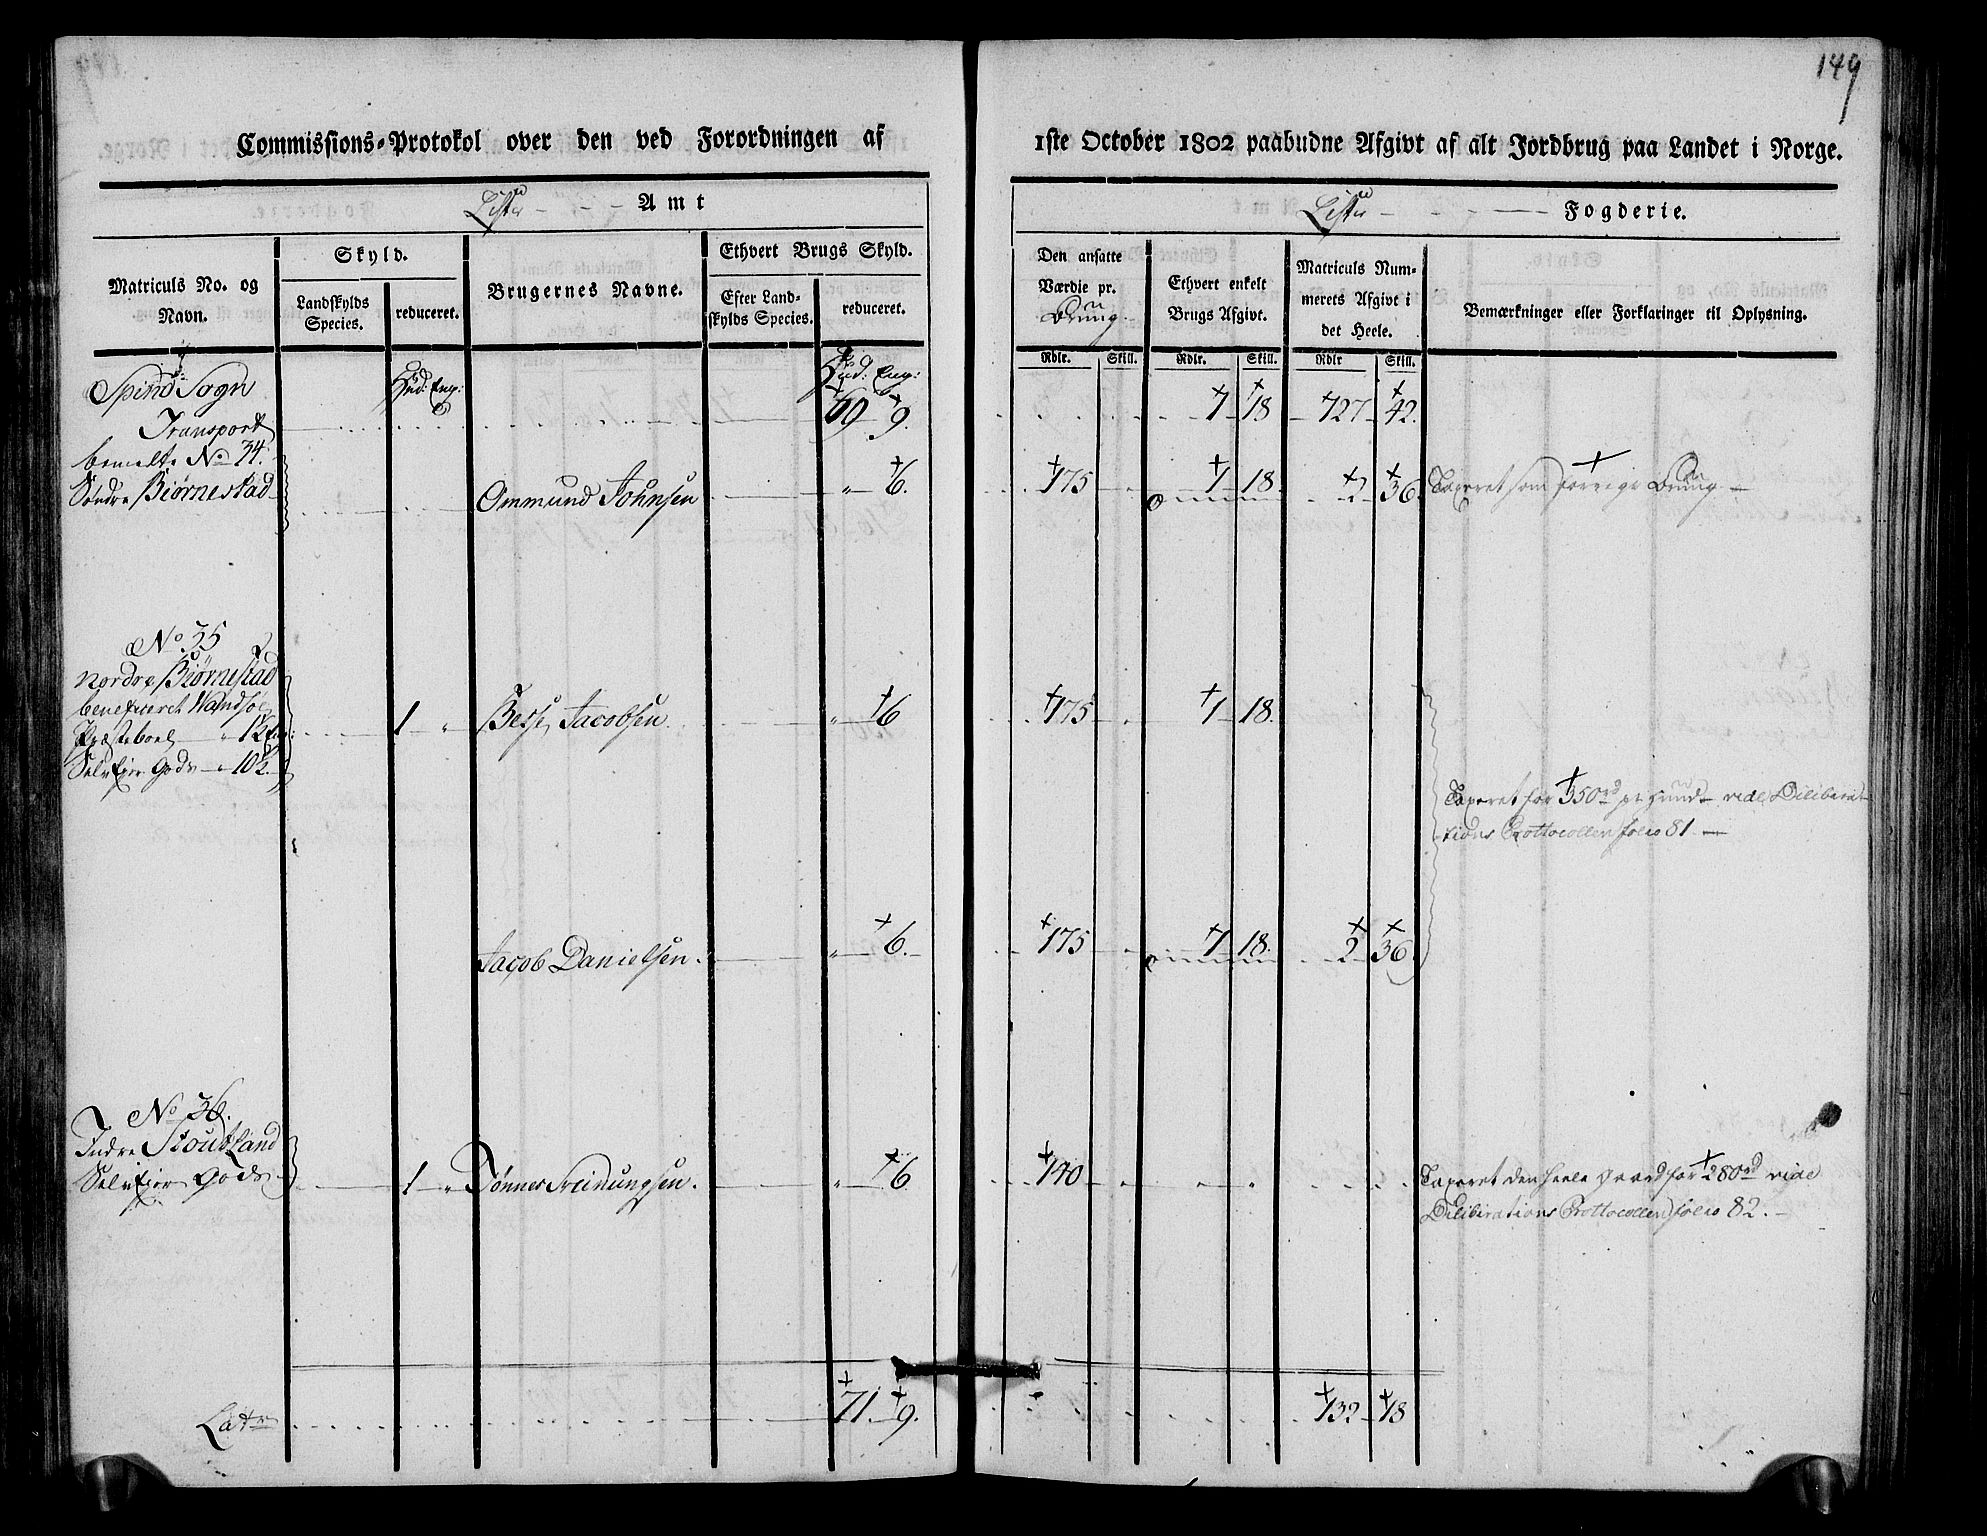 149
Commissions-Protokol over den ved Forordningen af 1ste October 1802 paabudne Afgivt af alt Jordbrug paa Landet i Norge.
Lister Amt
Lister Fogderie.
Matriculs No. og Navn.
Skyld.
Landskylds Species.
reduceret.
Brugernes Navne.
Ethvert Brugs Skyld.
Efter Landskylds Species.
reduceret.
Den ansatte Værdie pr. Bruug.
Rdlr. Skill.
Ethvert enkelt Brugs Afgivt.
Rdlr. Skill.
Matriculs Nummerets Afgivt i det Heele.
Rdlr Skill.
Bemærkninger eller Forklaringer til Oplysning.
Spind Sogn Hud: Eng: Hud: Eng:
Transport 69 9. 1 18 127 42.
bemelte No 34.
Søndre Biørnestad Ommund Johnsen " 6. 175 1 18. 2 36. Taxeret som forrige Bruug
No 35
Nordre Biørnestad
beneficeret Wandsøe
Præsteboel " 12 Eng: 1 " Berje Jacobsen " 6 175 1 18.
Selveier Gods 10½.
Taxeret for 350rd pr Huud vide Delibera-
tions Prottocollen folio 81
Jacob Danielsen " 6. 175 1 18. 2 36
No 36.
Indre Stoutland
Selveier Gods 1 " Tønnes Treinungsen. " 6 140 " " " Taxeret den heele Gaard for 280rd vide
Deliberations Prottocollen folio 82.
Latr 71. 9. 132 18